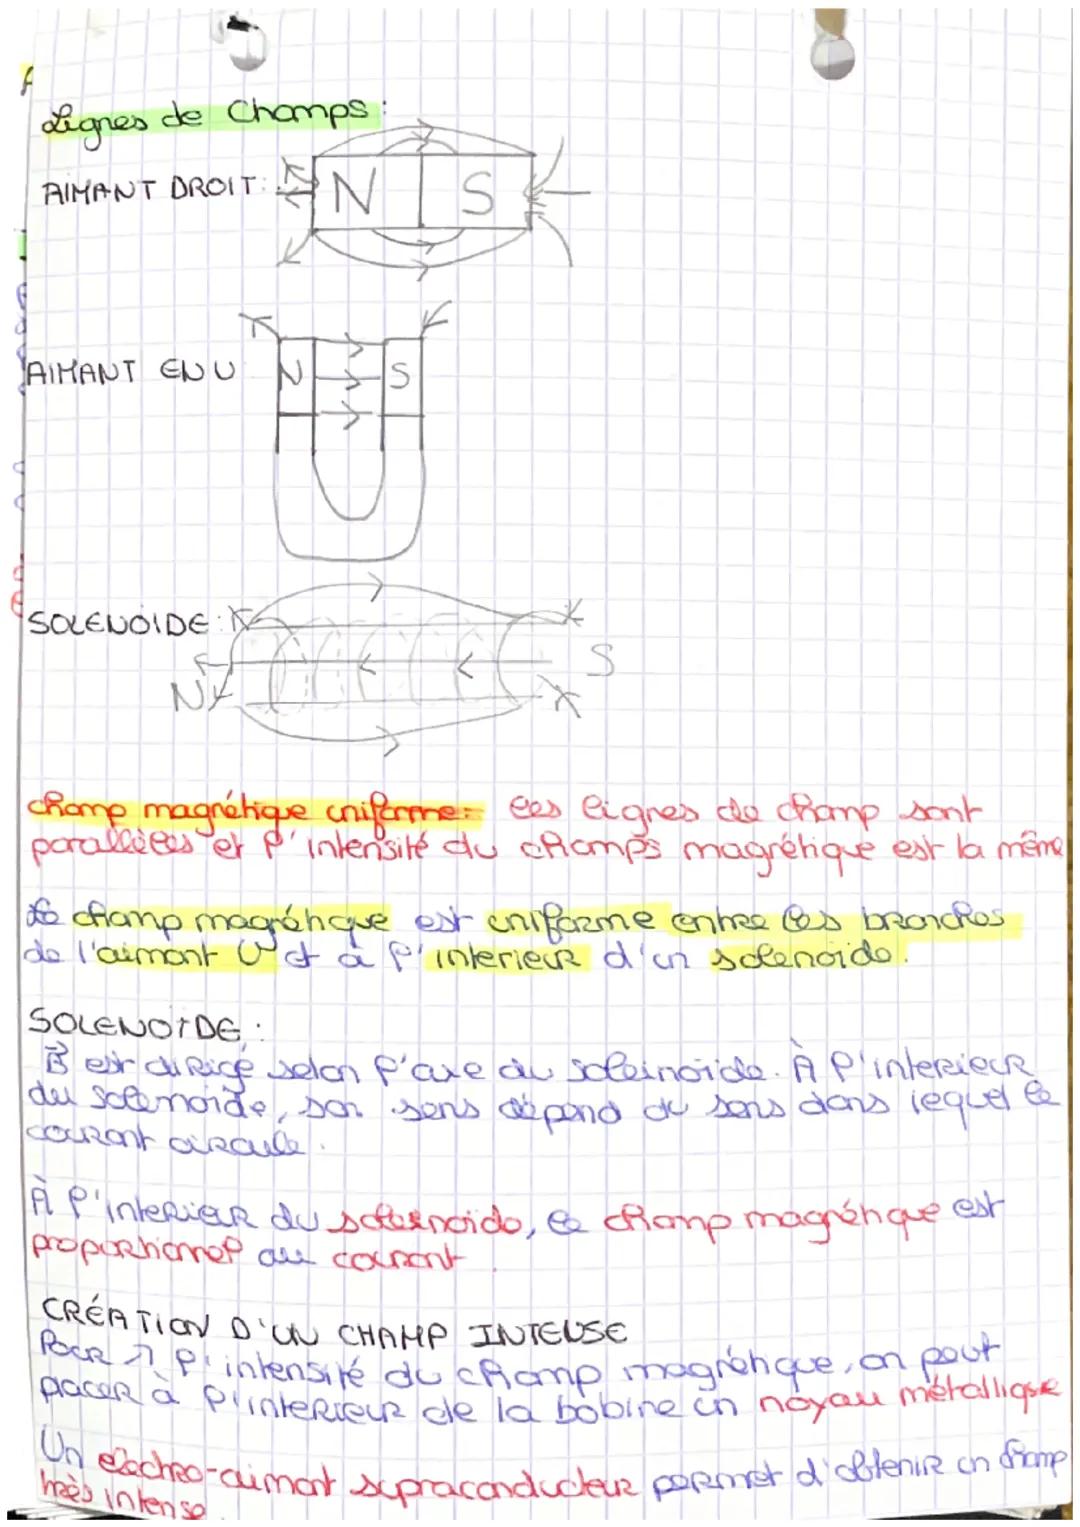 Lignes de Champs :
AIMANT DROIT: N S
AIMANT EN U N S
SOLENOIDE: S
N
champ magnétique uniforme= les lignes de champ sont
parallèles et l'intensité du champs magnétique est la même
Le champ magnétique est uniforme entre les branches
de l'aimant U et à l'interieur d'un solenoide.
SOLENOIDE :
B est dirigé selon l'axe du soleinoide. À l'interieur
du solenoide, son sens dépend du sens dans lequel le
courant circule.
À l'interieur du solesnoide, le champ magnétique est
proportionnel au courant.
CRÉATION D'UN CHAMP INTENSE
Pour ↗ l'intensité du champ magnétique, on peut
placer à l'interieur de la bobine un noyau métallique
Un electro-aimant supraconducteur permet d'obtenir un champ
très intense.